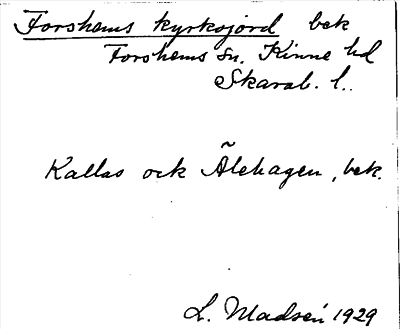 Forshems kyrksjord bek
Forshems sn. Kinne hd
Skarab. l.
Kallas ock Ålehagen, bek.
L. Madsén 1929